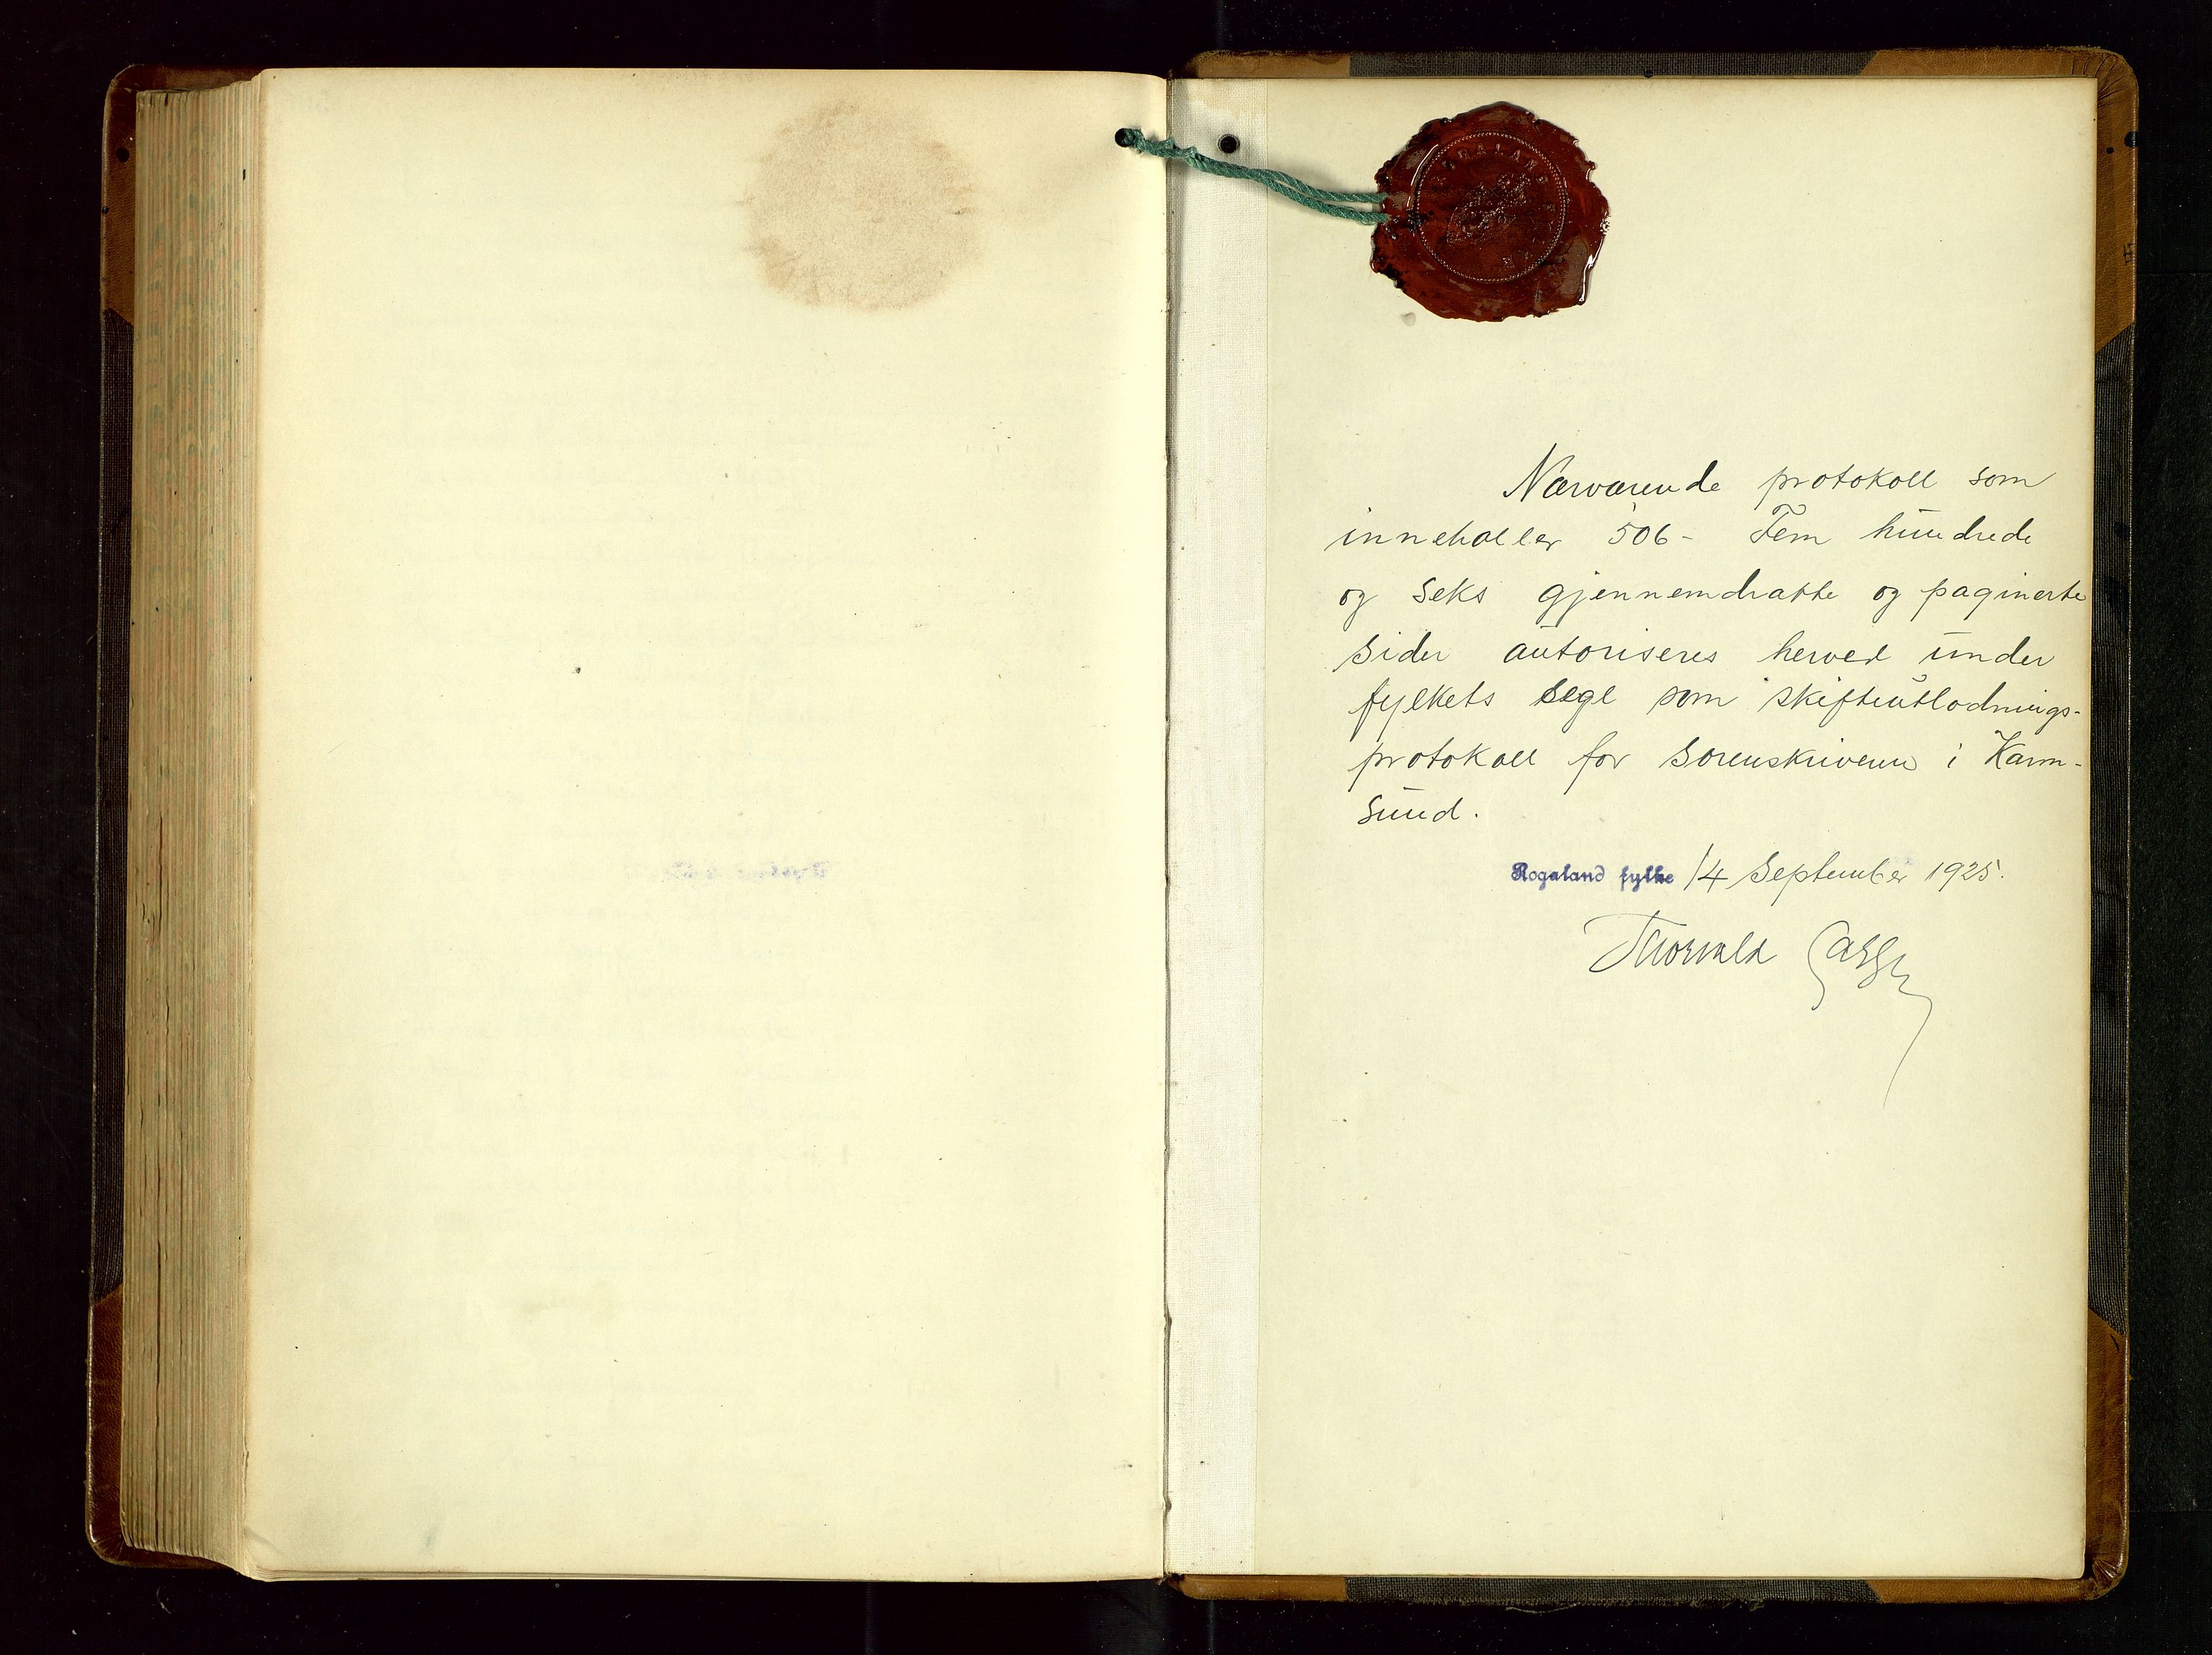 ROGALAND
Nærværende protokoll som
inneholler 506 - Fem hundrede
og seks gjennemdratte og paginerte
sider autoriseres herved under
fylkets segl som skifteutlodnings-
protokoll for sorenskriveren i Karm-
sund.
Rogaland fylke 14 September 1925.
Thorvald